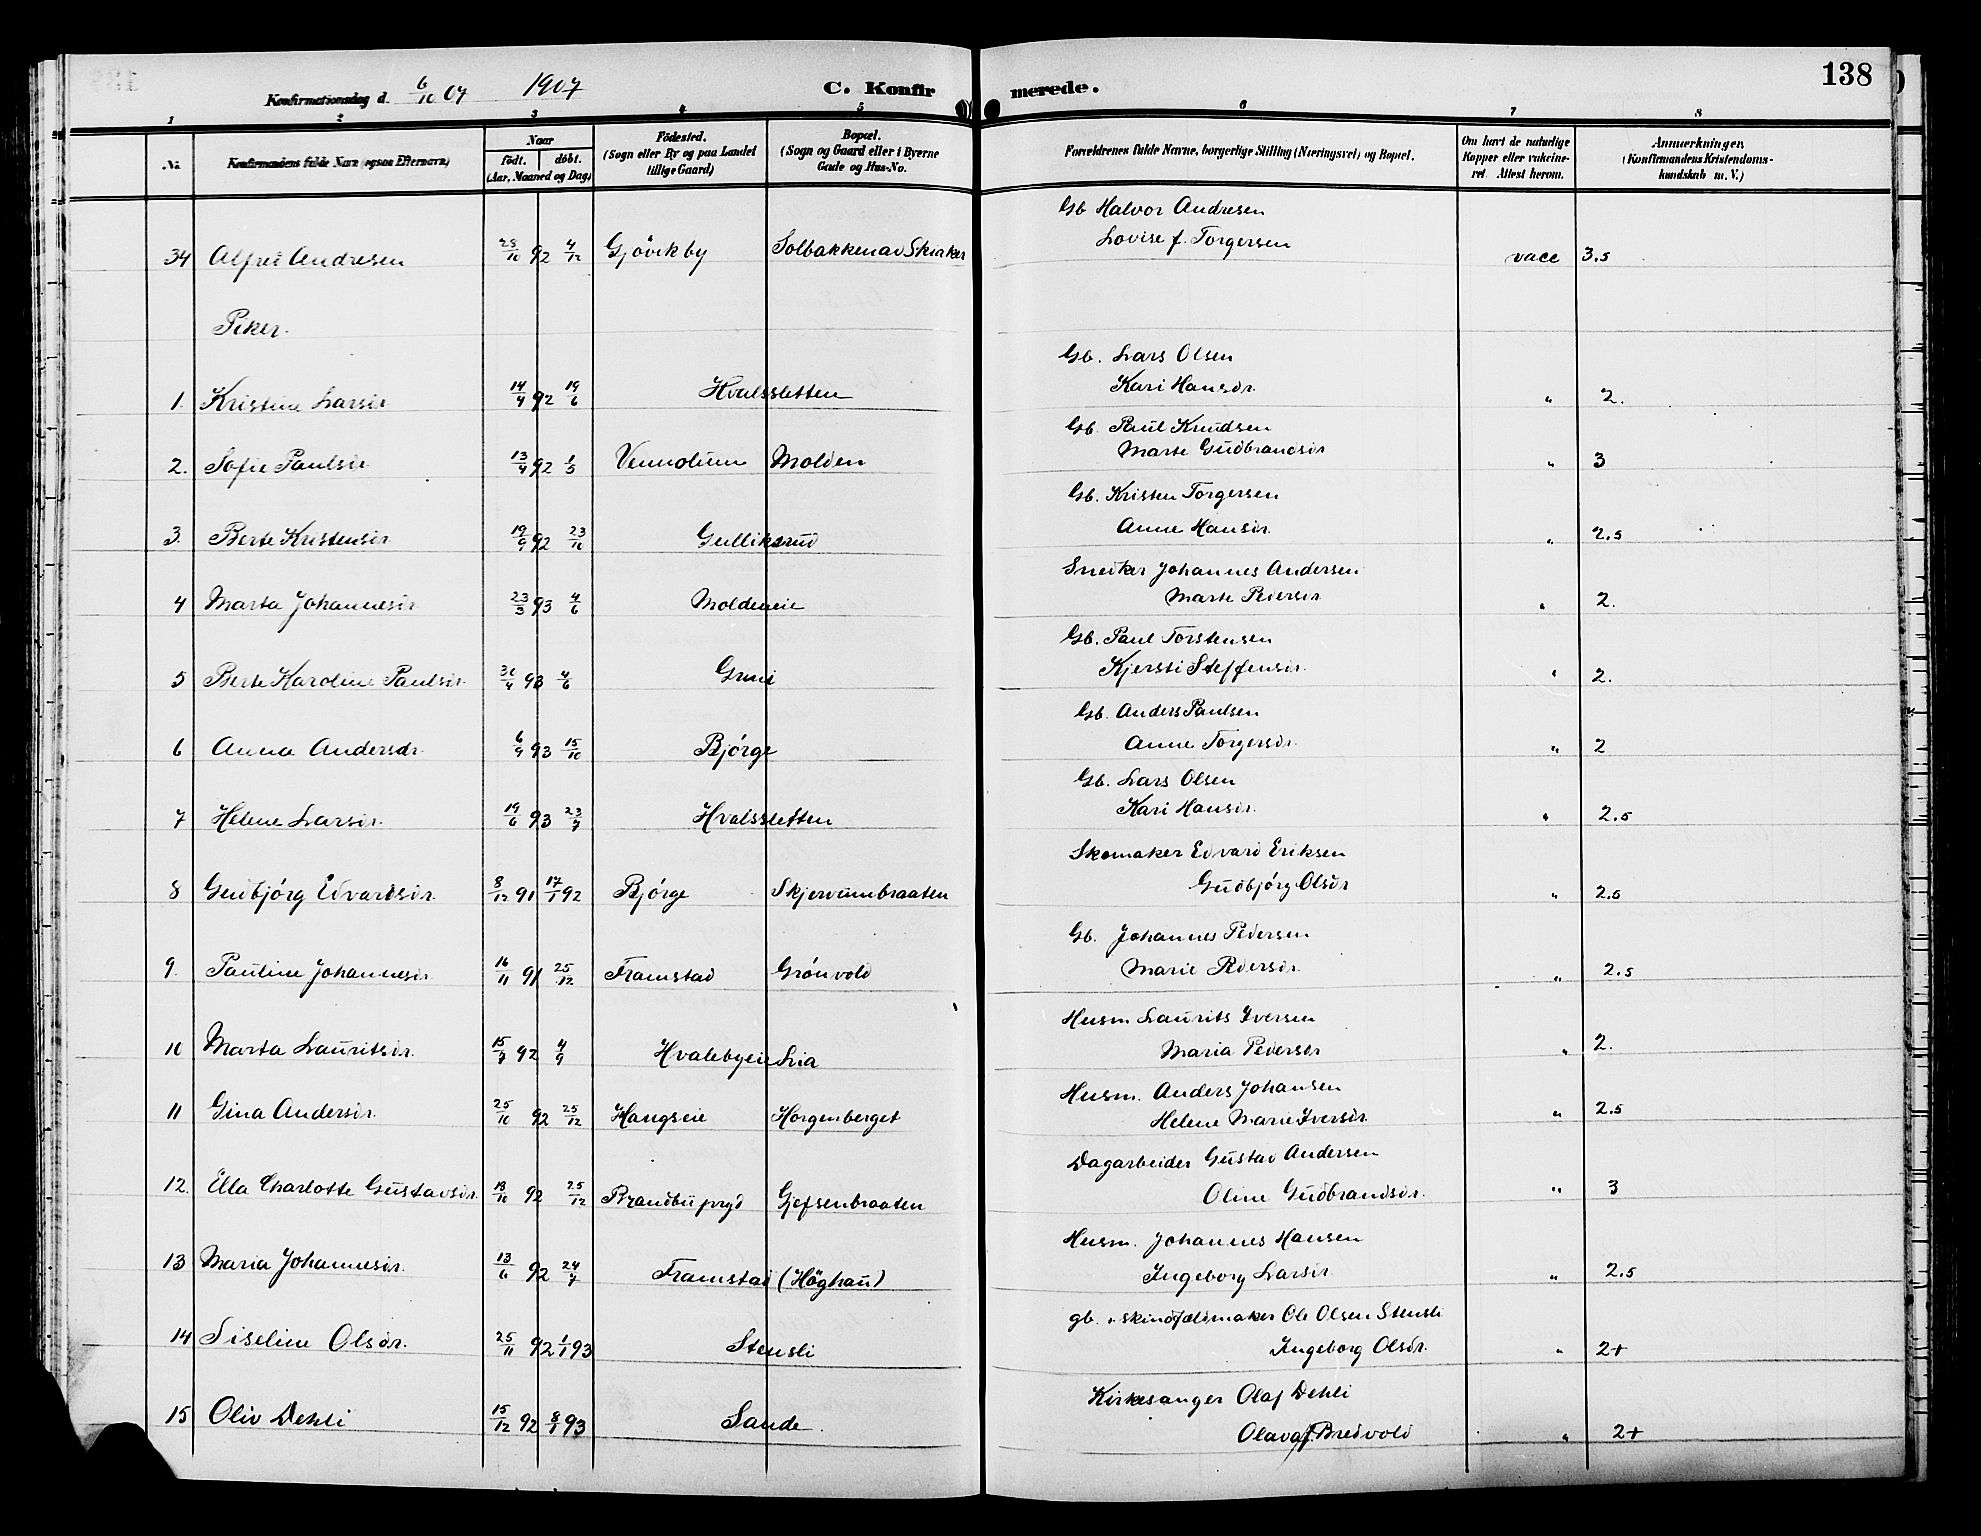 Konfirmationsdag d. 6/10 07 1907 C. Konfirmerede. 138
1 2 3 4 5 6 7 8
No. Konfirmandens fulde Navn (ogsaa Efternavn) Naar født. døbt. (Aar, Maaned og Dag) Fødested. (Sogn eller By og paa Landet tillige Gaard) Bopæl. (Sogn og Gaard eller i Byerne Gade og Hus-No. Forældrenes fulde Navne, borgerlige Stilling (Næringsvei) og Bopæl. Om havt de naturlige Kopper eller vakcineret. Attest herom. Anmærkninger. (Konfirmandens Kristendomskundskab m. V.)
Gb Halvor Andresen
34 Alfred Andresen 28/10 92 4/12 Gjøvik by Solbakken av Skiaker Lovise f. Torgersen vacc 3.5
Piker.
Gb. Lars Olsen
1. Kristine Larsdr 14/4 92 19/6 Hvalssletten Kari Hansdr. " 2.
Gb. Paul Knudsen
2. Sofie Paulsdr 13/4 92 1/5 Vennolum Molden Marte Gudbrandsdr " 3
Gb. Kristen Torgersen
3. Berte Kristensdr 19/9 92 23/10 Gulliksrud Anne Hansdr. " 2.5
Snedker Johannes Andersen
4 Marta Johannesdr 23/3 93 4/6 Moldeneie Marte Pedersdr " 2.
Gb. Paul Torstensen
5 Berte Karoline Paulsdr. 30/4 93 4/6 Gruni Kjersti Steffensdr. " 2.
Gb. Anders Paulsen
6 Anna Andersdr. 6/9 93 15/10 Bjørge Anne Torgersdr. " 2
Gb. Lars Olsen
7 Helene Larsdr. 19/6 93 23/7 Hvalssletten Kari Hansdr. " 2.5
Skomaker Edvard Eriksen
8 Gudbjørg Edvardsdr. 8/12 91 17/1 92 Bjørge Skjervumbraaten Gudbjørg Olsdr " 2.5
Gb. Johannes Pedersen
9. Pauline Johannesdr 16/11 91 25/12 Framstad Grønvold Marie Pedersdr. " 2.5
Husm. Laurits Iversen
10 Marta Lauritsdr. 15/7 92 4/9 Hvalebyeie Lia Maria Pedersdr " 2.
Husm. Anders Johansen
11 Gina Andersdr. 25/10 92 25/12 Haugseie Horgenberget Helene Marie Iversdr. " 2.5
Dagarbeider Gustav Andersen
12. Ella Charlotte Gustavsdr. 13/10 92 25/12 Brandbu prgd Gjefsenbraaten Oline Gudbrandsdr. " 3
Husm. Johannes Hansen
13 Maria Johannesdr. 13/6 92 24/7 Framstad (Høghau) Ingeborg Larsdr. " 2.5
gb. & skindfældmaker Ole Olsen Stensli
14 Siseline Olsdr. 25/11 92 1/1 93 Stensli Ingeborg Olsdr. " 2+
Kirkesanger Olaf Dehli
15 Oliv Dehli 15/12 92 8/1 93 Sande. Olava f. Bredvold " 2+